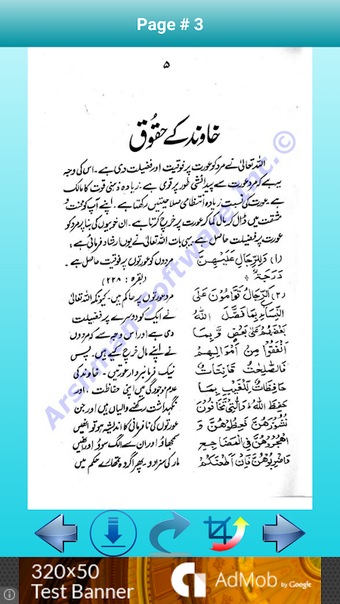 Page # 3
۵
خاوند کے حقوق
اللہ تعالیٰ نے مرد کو عورت پر فوقیت اور فضیلت دی ہے۔ اس کی وجہ
یہ ہے کہ مرد عورت سے پیدائشی طور پر قوی ہے، زیادہ ذہنی قوت کا مالک
ہے، عورت کی نسبت زیادہ انتظامی صلاحیتیں رکھتا ہے۔ اپنے آپ کو محنت و
مشقت میں ڈال کر مال کما کر عورت پر خرچ کرتا ہے۔ ان خوبیوں کی بنا پر مرد کو
عورت پر فضیلت حاصل ہے۔ یہی بات اللہ تعالیٰ نے یوں ارشاد فرمائی ہے،
(۱) وَلِلرِّجَالِ عَلَیْهِنَّ
دَرَجَةٌ
مردوں کو عورتوں پر فوقیت حاصل ہے۔
(البقرہ: ۲۲۸)
(۲) اَلرِّجَالُ قَوَّامُوْنَ عَلَی
النِّسَآءِ بِمَا فَضَّلَ اللّٰهُ
بَعْضَهُمْ عَلٰی بَعْضٍ وَّ بِمَا
اَنْفَقُوْا مِنْ اَمْوَالِهِمْ
فَالصّٰلِحٰتُ قَانِتَاتٌ
حَافِظَاتٌ لِّلْغَیْبِ بِمَا
حَفِظَ اللّٰهُ وَالّٰتِیْ تَخَافُوْنَ
نُشُوْزَهُنَّ فَعِظُوْهُنَّ وَ
اهْجُرُوْهُنَّ فِی الْمَضَاجِعِ
وَاضْرِبُوْهُنَّ فَاِنْ اَطَعْنَكُمْ
مرد عورتوں پر حاکم ہیں۔ کیونکہ اللہ تعالیٰ
نے ایک کو دوسرے پر فضیلت
دی ہے اور اس وجہ سے کہ مردوں
نے اپنے مال خرچ کیے ہیں۔ پس
نیک فرمانبردار عورتیں۔ خاوند کی
عدم موجودگی میں اپنی حفاظت، اور
نگہداشت رکھنے والیاں ہیں اور جن
عورتوں کی نافرمانی کا اندیشہ ہو تو انہیں
سمجھاؤ اور ان سے الگ سوؤ اور انہیں
مار کی سزا دو۔ پھر اگر وہ تمہارے حکم میں
Arshman Software Inc. ©
320x50
Test Banner
AdMob by Google